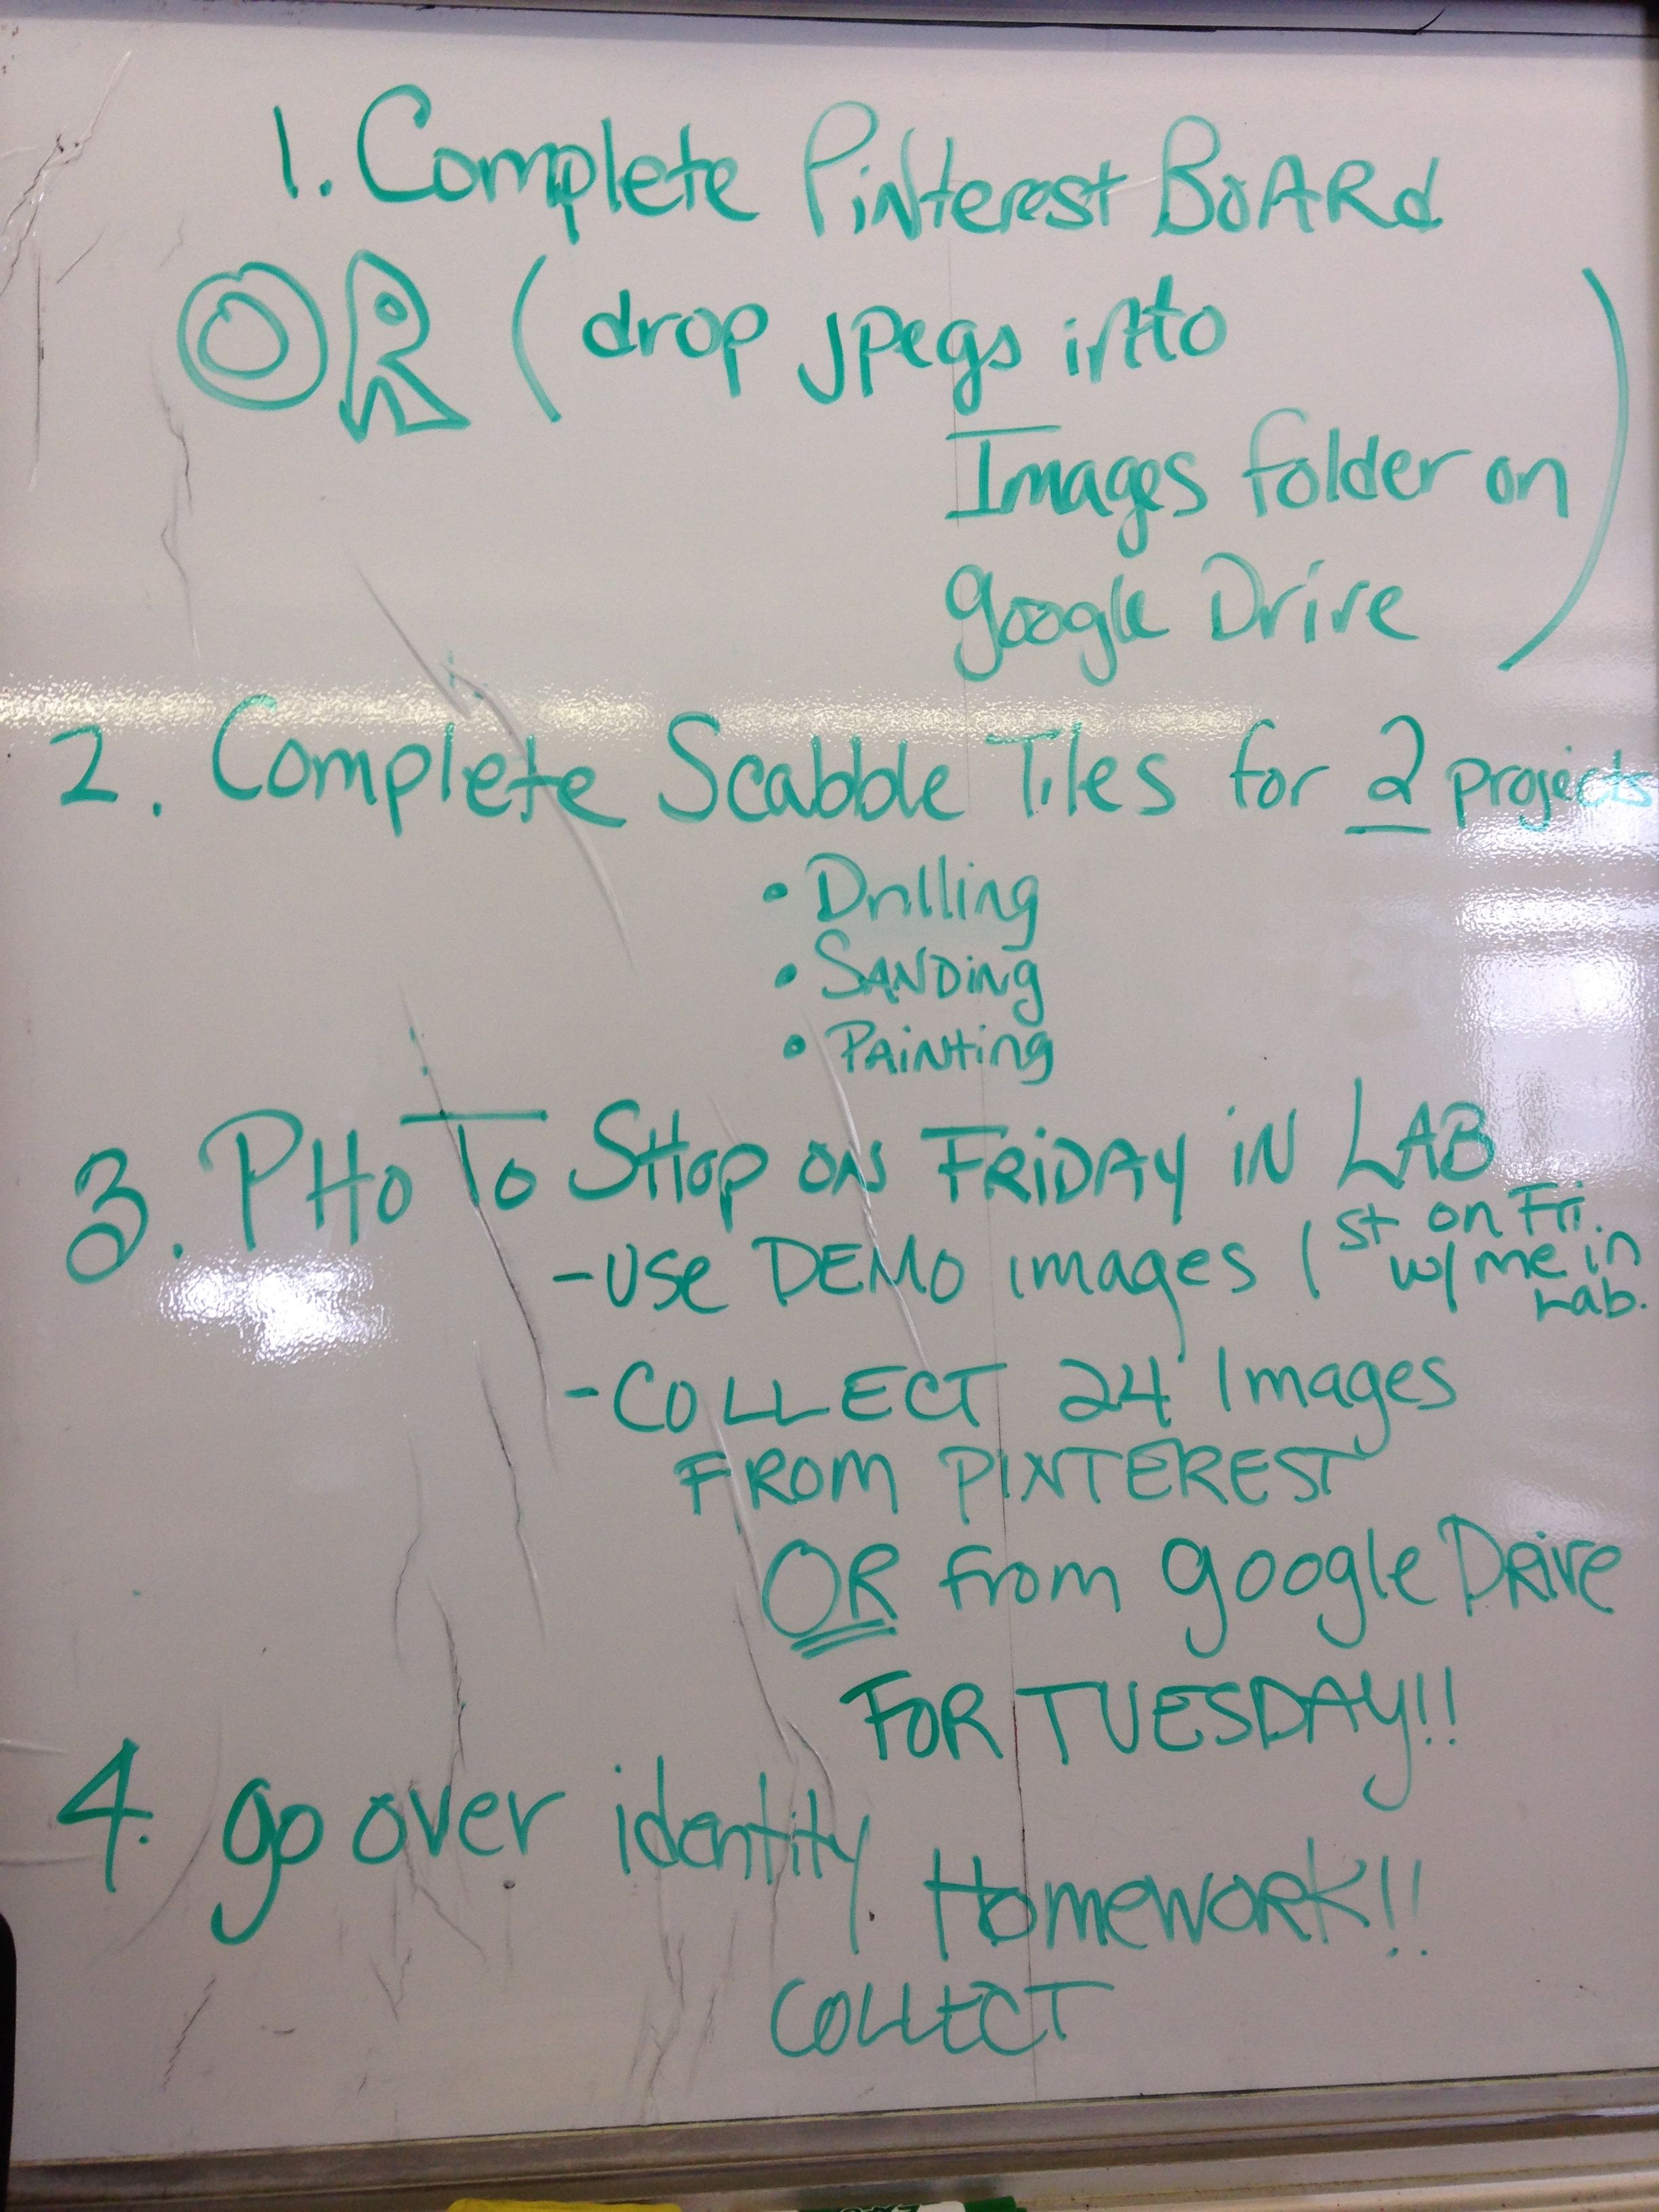 1. Complete Pinterest Board
OR ( drop jpegs into
Images folder on
google Drive )
2. Complete Scabble Tiles for 2 projects
• Drilling
• SANDiNg
• PAiNting
3. PHOTO SHOP ON FRiDAY iN LAB
- use DEMO images 1st on Fri.
w/ me in
Lab.
- COLLECT 24 Images
FROM PINTEREST
OR from google Drive
FOR TUESDAY!!
4. go over identity
Homework!!
COLLECT